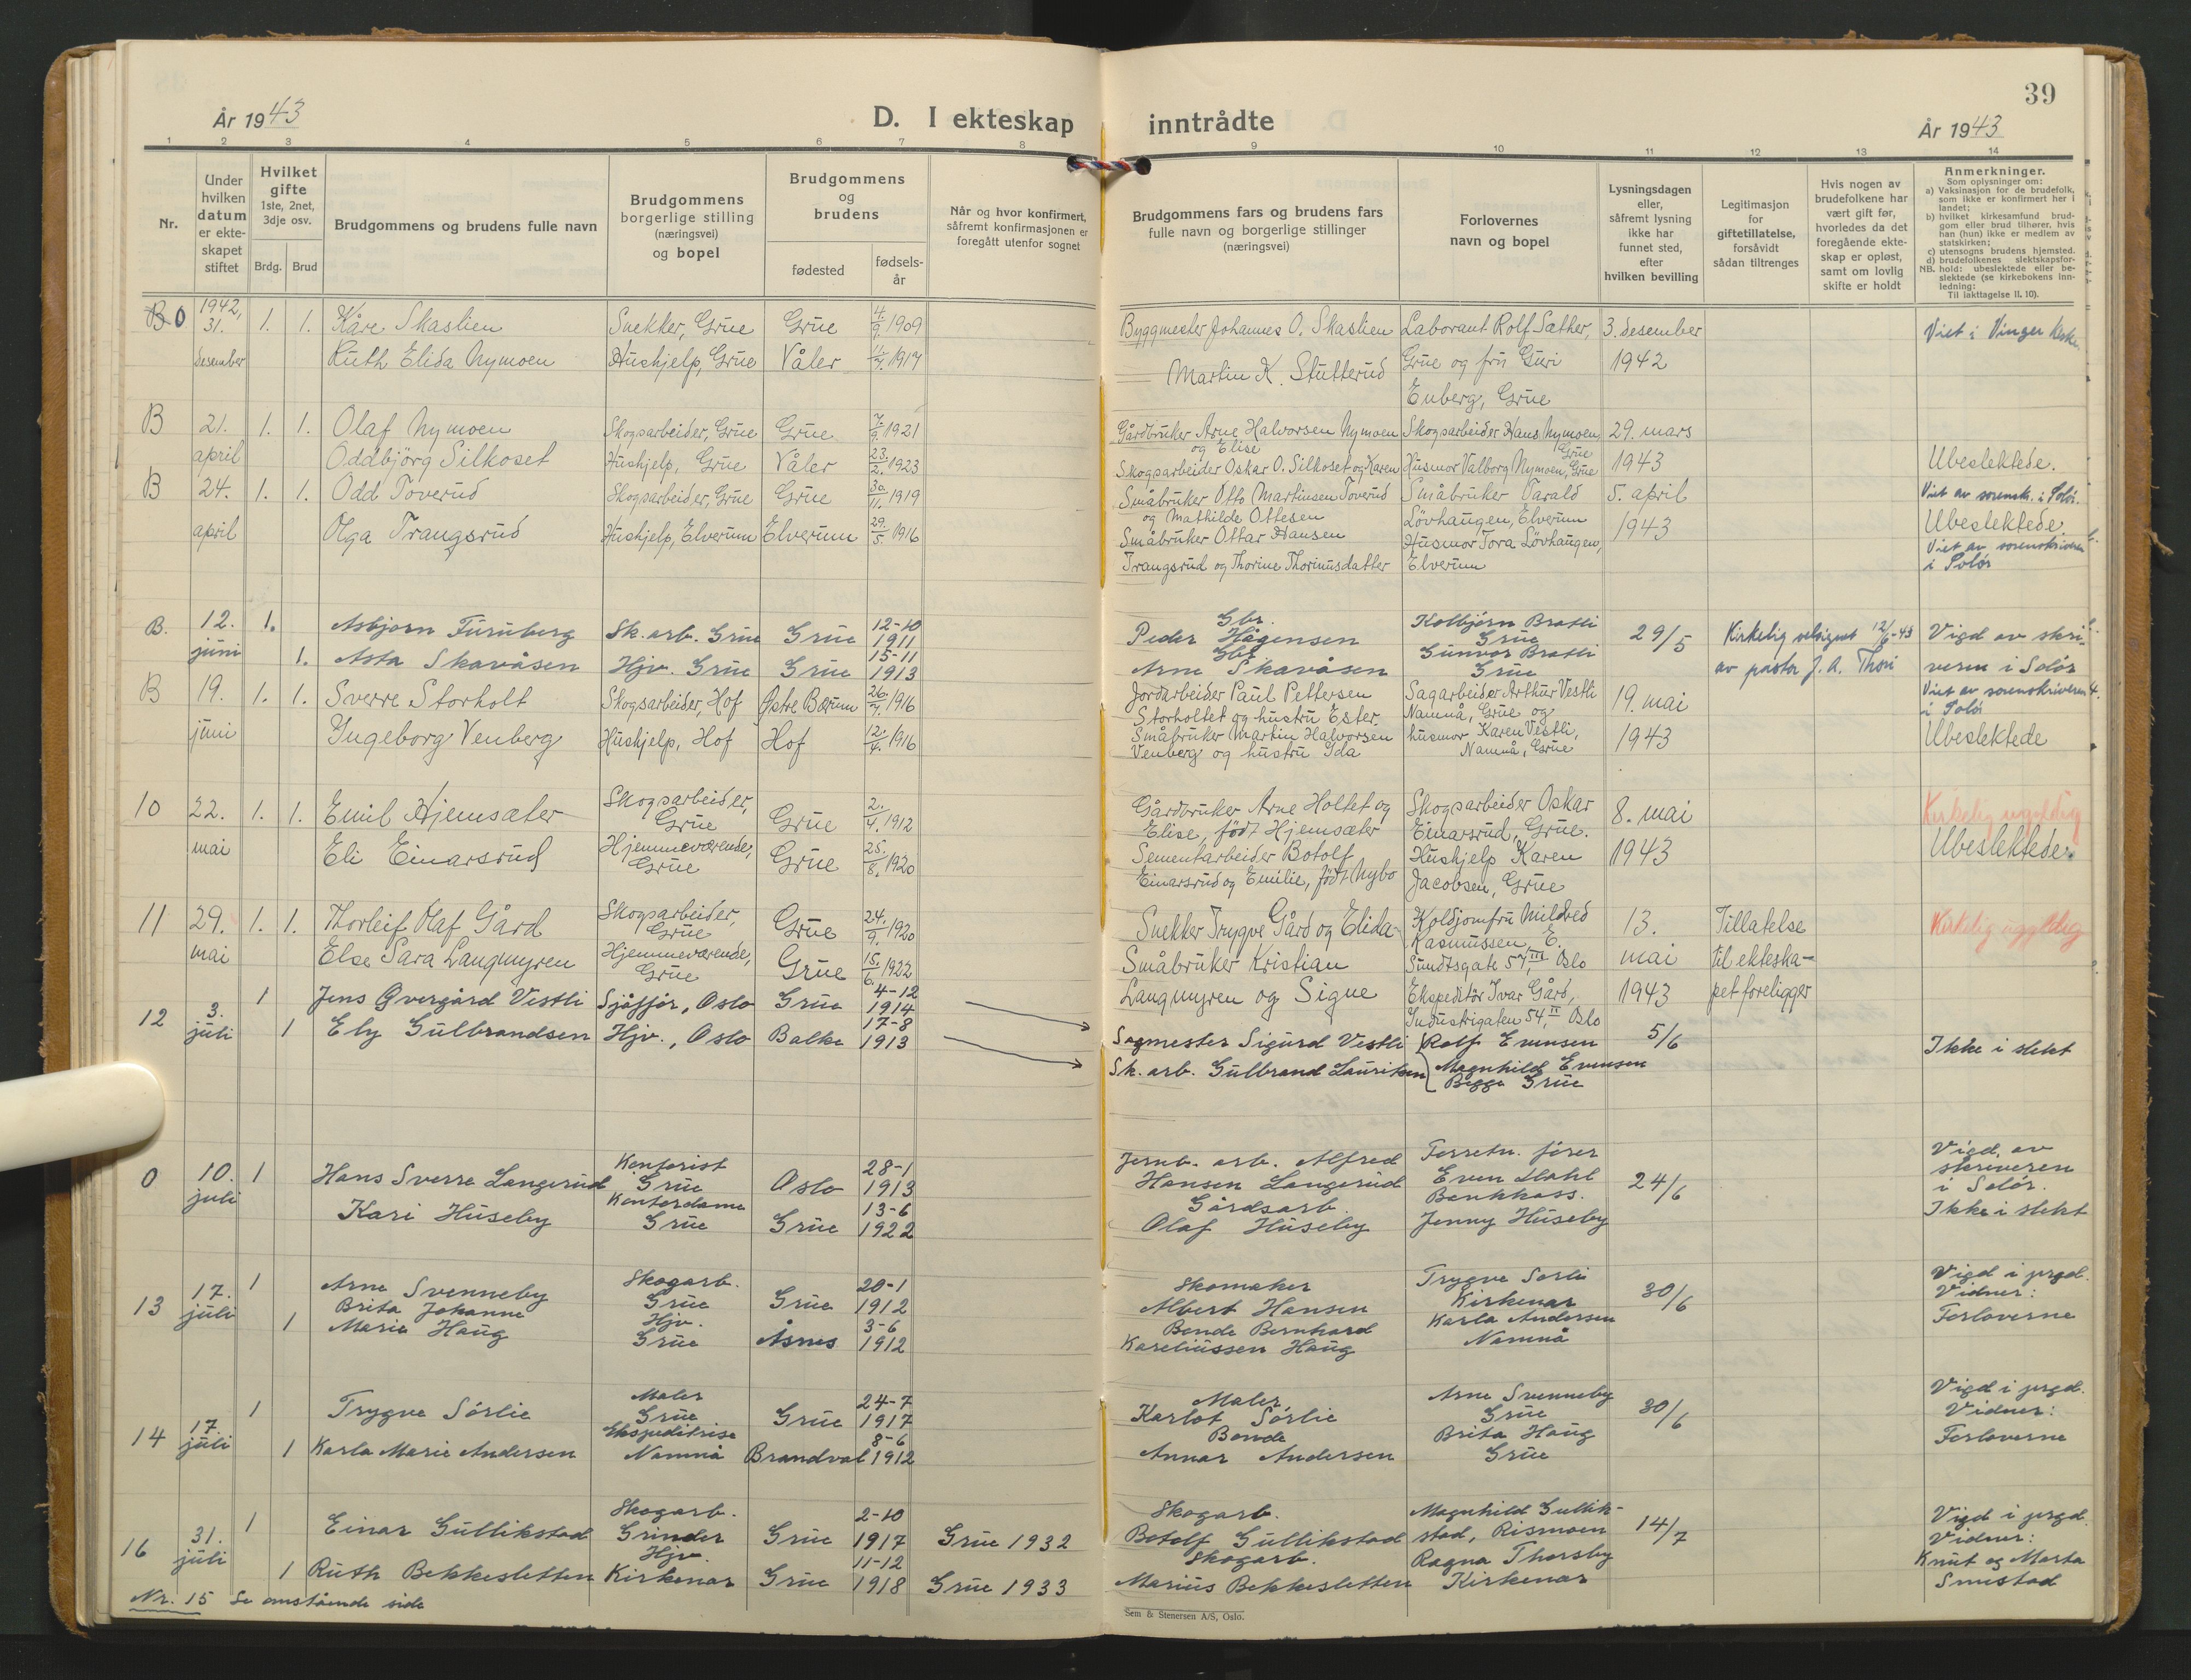 39
År 1943
D. I ekteskap inntrådte
År 1943
1 2 3 4 5 6 7 8 9 10 11 12 13 14
Nr.
Under hvilken datum er ekteskapet stiftet
Hvilket gifte 1ste, 2net, 3dje osv.
Brdg. Brud
Brudgommens og brudens fulle navn
Brudgommens borgerlige stilling (næringsvei) og bopel
Brudgommens og brudens
fødested
fødselsår
Når og hvor konfirmert, såfremt konfirmasjonen er foregått utenfor sognet
Brudgommens fars og brudens fars fulle navn og borgerlige stillinger (næringsvei)
Forlovernes navn og bopel
Lysningsdagen eller, såfremt lysning ikke har funnet sted, efter hvilken bevilling
Legitimasjon for giftetillatelse, forsåvidt sådan tiltrenges
Hvis nogen av brudefolkene har vært gift før, hvorledes da det foregående ekteskap er opløst, samt om lovlig skifte er holdt
Anmerkninger.
Som oplysninger om:
a) Vaksinasjon for de brudefolk, som ikke er konfirmert her i landet;
b) hvilket kirkesamfund brudgom eller brud tilhører, hvis han (hun) ikke er medlem av statskirken;
c) utensogns brudens hjemsted.
d) brudefolkenes slektskapsforhold: ubeslektede eller beslektede (se kirkebokens innledning:
NB.
Til iakttagelse II. 10).
0 1942, 31. desember 1. 1.
Kåre Skaslien Snekker, Grue Grue 4/9. 1909
Ruth Elida Nymoen Hushjelp, Grue Våler 1917
Byggmester Johannes O. Skaslien
Martin K. Stutterud
Laborant Rolf Sæther,
Grue og fru Guri
Enberg, Grue
3. desember
1942
Viet i Vinger kirke
B 21. april 1. 1.
Olaf Nymoen Skogsarbeider, Grue Grue 7/9. 1921
Oddbjörg Silkoset Hushjelp, Grue Våler 23/2. 1923
Gårdbruker Arne Halvorsen Nymoen
og Elise
Skogsarbeider Oskar O. Silkoset og Karen
Skogsarbeider Hans Nymoen,
Grue
Husmor Valborg Nymoen, Grue
29. mars
1943
Ubeslektede.
Viet av sorensk. i Solør.
B 24. april 1. 1.
Odd Toverud Skogsarbeider, Grue Grue 30/11. 1919
Olga Trangsrud Hushjelp, Elverum Elverum 29/5 1916
Småbruker Otto Martinsen Toverud
og Mathilde Ottesen
Småbruker Ottar Hansen
Trangsrud og Thorine Thorinusdatter
Småbruker Tarald
Lövhaugen, Elverum
Husmor Tora Lövhaugen,
Elverum
5. april
1943
Ubeslektede
Viet av sorenskriveren
i Solør
B. 12. juni 1. 1.
Asbjørn Furuberg Sk. arb. Grue Grue 12-10 1911
Asta Skavåsen Hjv. Grue Grue 15-11 1913
Gbr.
Peder Hågensen
Gbr.
Arne Skavåsen
Kolbjørn Bratli
Grue
Gunvor Bratli
Grue
29/5
Kirkelig velsignet 12/6-43
av pastor J. A. Thori
Vigd av skri-
veren i Solør
B 19. juni 1. 1.
Sverre Storholt Skogsarbeider, Hof Østre Bærum 26/7. 1916
Ingeborg Venberg Hushjelp, Hof Hof 12/4. 1916
Jordarbeider Paul Pettersen
Storholtet og hustru Ester.
Småbruker Martin Halvorsen
Venberg og hustru Ida
Sagarbeider Arthur Vestli
Namnå, Grue og
husmor Karen Vestli,
Namnå, Grue
19. mai
1943
Viet av sorenskriveren
i Solør
Ubeslektede
10 22. mai 1. 1.
Emil Hjemsæter Skogsarbeider, Grue Grue 2./4. 1912
Eli Einarsrud Hjemmeværende, Grue Grue 25./8. 1920
Gårdbruker Arne Holtet og
Elise, födt Hjemsæter
Sementarbeider Botolf
Einarsrud og Emilie, födt Nybo
Skogsarbeider Oskar
Einarsrud, Grue.
Hushjelp Karen
Jacobsen, Grue
8. mai
1943
Kirkelig ugyldig
Ubeslektede.
11 29. mai 1. 1.
Thorleif Olaf Gård Skogsarbeider, Grue Grue 24./9. 1920
Else Sara Langmyren Hjemmeværende, Grue Grue 15./6. 1922
Snekker Trygve Gård og Elida
Småbruker Kristian
Langmyren og Signe
Koldjomfru Mildred
Rasmussen, E.
Sundtsgate 57, III Oslo
Ekspeditör Ivar Gård,
Industrigaten 54, II Oslo
13.
mai
1943
Tillatelse
til ekteska-
pet foreligger
Kirkelig ugyldig
12 3. juli 1 1
Jens Øvergård Vestli Sjåffør, Oslo Grue 4-12 1914
Ely Gulbrandsen Hjv., Oslo Balke 17-8 1913
Sagmester Sigurd Vestli
Sk. arb. Gulbrand Lauritsen
Rolf Evensen
Magnhild Evensen
Begge Grue
5/6
Ikke i slekt
0 10. juli 1
Hans Sverre Langerud Kontorist Grue Oslo 28-1 1913
Kari Huseby Kontordame Grue Grue 13-6 1922
Jernb. arb. Alfred
Hansen Langerud
Gårdsarb.
Olaf Huseby
Forretn. fører
Even Dahl
Bankkass.
Jenny Huseby
24/6
Vigd. av
skriveren
i Solør.
Ikke i slekt
13 17. juli 1 1
Arne Svenneby Skogarb. Grue Grue 20-1 1912
Brita Johanne
Marie Haug Hjv. Grue Åsnes 3-6 1912
Skomaker
Albert Hansen
Bonde Bernhard
Kareliussen Haug
Trygve Sørli
Kirkenær
Karla Andersen
Namnå
30/6
Vigd i prgd.
Vidner:
Forloverne
14 17. juli 1 1
Trygve Sørlie Maler Grue Grue 24-7 1917
Karla Marie Andersen Ekspeditrise Namnå Brandval 8-6 1912
Maler
Karlot Sørlie
Bonde
Annar Andersen
Arne Svenneby
Grue
Brita Haug
Grue
30/6
Vigd i prgd.
Vidner:
Forloverne
16 31. juli 1 1
Einar Gullikstad Skogarb. Grinder Grue 2-10 1917 Grue 1932
Ruth Bekkesletten Hjv. Kirkenær Grue 11-12 1918 Grue 1933
Skogarb.
Botolf Gullikstad
Skogarb.
Marius Bekkesletten
Magnhild Gullik-
stad, Rismoen
Ragna Thorsby
Kirkenær
14/7
Vigd i prgd.
Vidner:
Knut og Marta
Smestad
Nr. 15 Se omstående side
Sem & Stenersen A/S, Oslo.